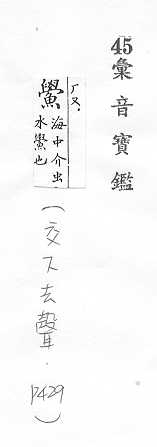 45
彙音寶鑑
ㄏㄡˋ
鱟 海中介虫
水鱟也
(交下去聲.
P429)